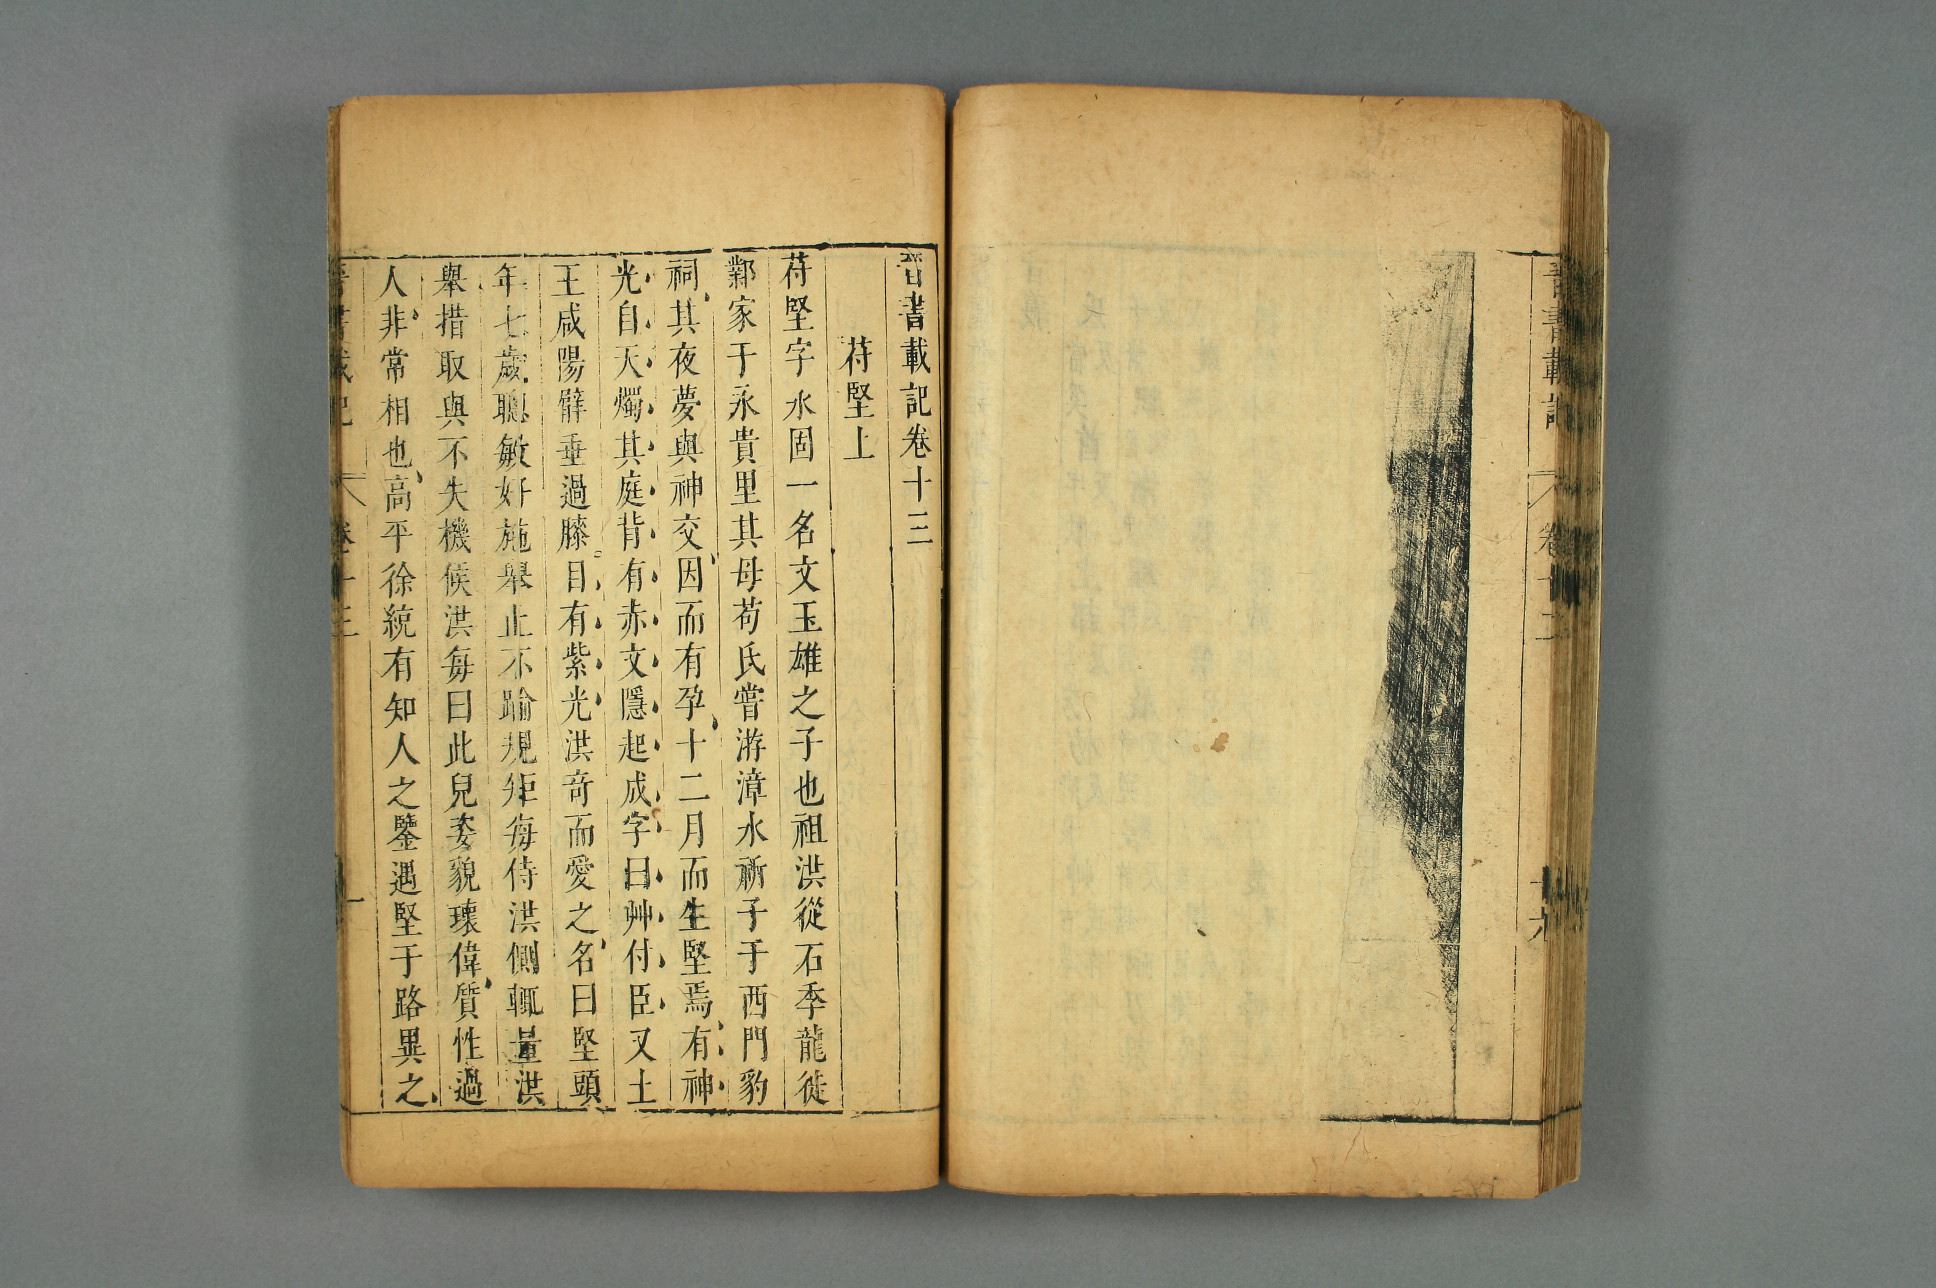 晉書載記
卷十二
晉書載記卷十三
苻堅上
苻堅字永固一名文玉雄之子也祖洪從石季龍徙
鄴家于永貴里其母苟氏嘗游漳水祈子于西門豹
祠其夜夢與神交因而有孕十二月而生堅焉有神
光自天燭其庭背有赤文隱起成字曰艸付臣又土
王咸陽臂垂過膝目有紫光洪奇而愛之名曰堅頭
年七歲聰敏好施舉止不踰規矩每侍洪側輒量洪
舉措取與不失機候洪每曰此兒姿貌瓌偉質性過
人非常相也高平徐統有知人之鑒遇堅于路異之
晉書載記
卷十三
一